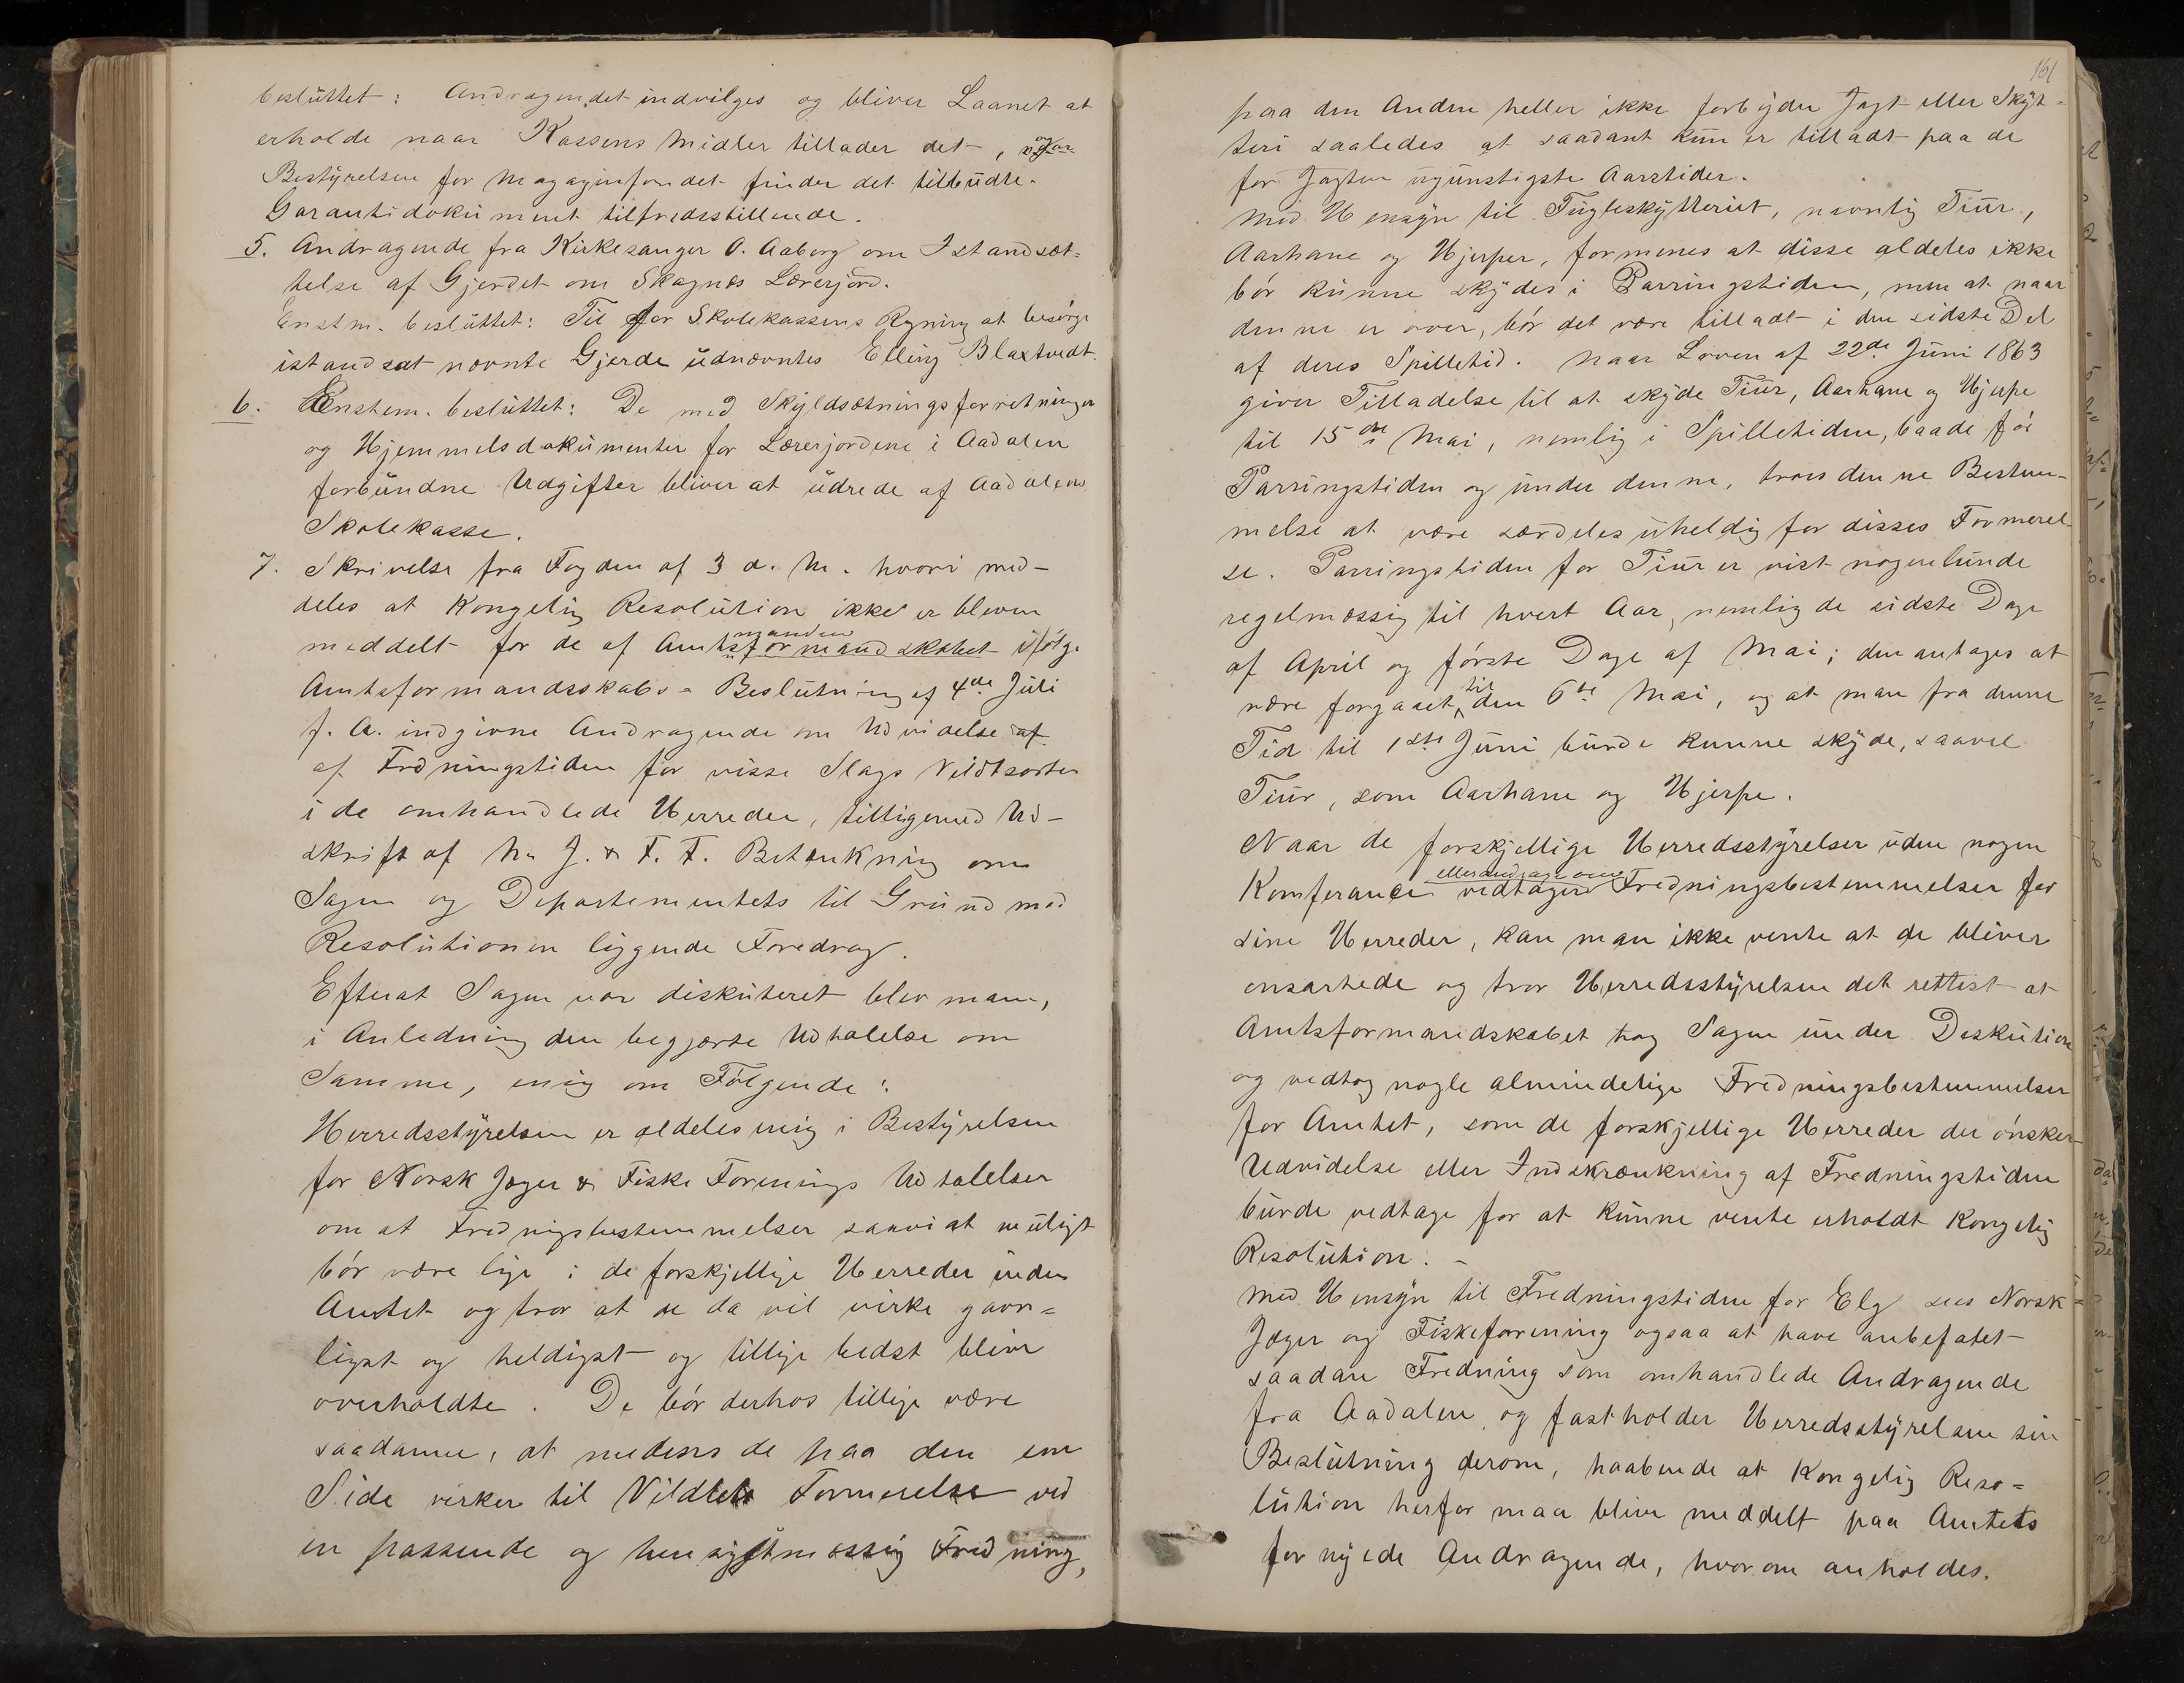 besluttet: Andragendet indvilges og bliver Laanet at
erholde naar Kassens Midler tillader det, og
Bestyrelsen for Magazinfondet finder det tilbudte
Garantidokument tilfredsstillende.
5. Andragende fra Kirkesanger O. Aaberg om Istandsæt=
telse af Gjerdet om Skagnæs Lærerjord.
Enstm. besluttet: Til for Skolekassens Regning at besørge
istandsat nævnte Gjerde udnævntes Elling Blaxtvedt.
6. Enstem. besluttet: De med Skyldsætningsforretninger
og Hjemmelsdokumenter for Lærerjordene i Aadalen
forbundne Udgifter bliver at udrede af Aadalens
Skolekasse.
7. Skrivelse fra Fogden af 3 d. M. hvori med-
deles at Kongelig Resolution ikke er bleven
meddelt for de af Amtsformandskabet manden ifølge
Amtsformandsskabs-Beslutning af 4de Juli
f. A. indgivne Andragende om Udvidelse af
af Fredningstiden for visse Slags Vildtsorter
i de omhandlede Herreder, tilligemed Ud-
skrift af N. J. & F. F. Betænkning om
Sagen og Departementets til Grund med
Resolutionen liggende Foredrag.
Efterat Sagen var diskuteret blev man,
i Anledning den begjærte Udtalelse om
Samme, enig om Følgende:
Herredsstyrelsen er aldeles enig i Bestyrelsen
for Norsk Jæger & Fiske Forenings Udtalelser
om at Fredningsbestemmelser saavidt muligt
bør være lige i de forskjellige Herreder inden
Amtet og tror at de da vil virke gavn=
ligst og heldigst og tillige bedst blive
overholdte. De bør derhos tillige være
saadanne, at medens de paa den ene
Side virker til Vildtets Formerelse ved
en passende og hensigtsmæssig Fredning,
161
paa den Anden heller ikke forbyder Jagt eller Skyt=
teri saaledes at saadant kun er tilladt paa de
for Jagten ugunstigste Aarstider.
Med Hensyn til Fugleskytteriet, navnlig Tiur,
Aarhane og Hjerper, formenes at disse aldeles ikke
bør kunne skydes i Parringstiden, men at naar
denne er over, bør det være tilladt i den sidste Del
af deres Spilletid. Naar Loven af 22de Juni 1863
giver Tilladelse til at skyde Tiur, Aarhane og Hjerpe
til 15de Mai, nemlig i Spilletiden, baade før
Parringstiden og under denne, troes denne Bestem-
melse at være særdeles uheldig for disses Formerel-
se. Parringstiden for Tiur er vist nogenlunde
regelmæssig til hvert Aar, nemlig de sidste Dage
af April og første Dage af Mai; den antages at
være forgaaet til den 6te Mai, og at man fra denne
Tid til 1ste Juni burde kunne skyde, saavel
Tiur, som Aarhane og Hjerpe.
Naar de forskjellige Herredsstyrelser uden nogen
Komferance vedtager eller andrage om Fredningsbestemmelser for
sine Herreder, kan man ikke vente at de bliver
ensartede og tror Herredsstyrelsen det rettest at
Amtsformandskabet tog Sagen under Deskution
og vedtog nogle almindelige Fredningsbestemmelser
for Amtet, som de forskjellige Herreder der ønsker
Udvidelse eller Indskrænkning af Fredningstiden
burde vedtage for at kunne vente erholdt Kongelig
Resolution. -
Med Hensyn til Fredningstiden for Elg sees Norsk
Jæger og Fiskeforening ogsaa at have anbefalet
saadan Fredning som omhandlede Andragende
fra Aadalen og fastholder Herredsstyrelsen sin
Beslutning derom, haabende at Kongelig Reso=
lution herfor maa blive meddelt paa Amtets
fornyede Andragende, hvorom anholdes.